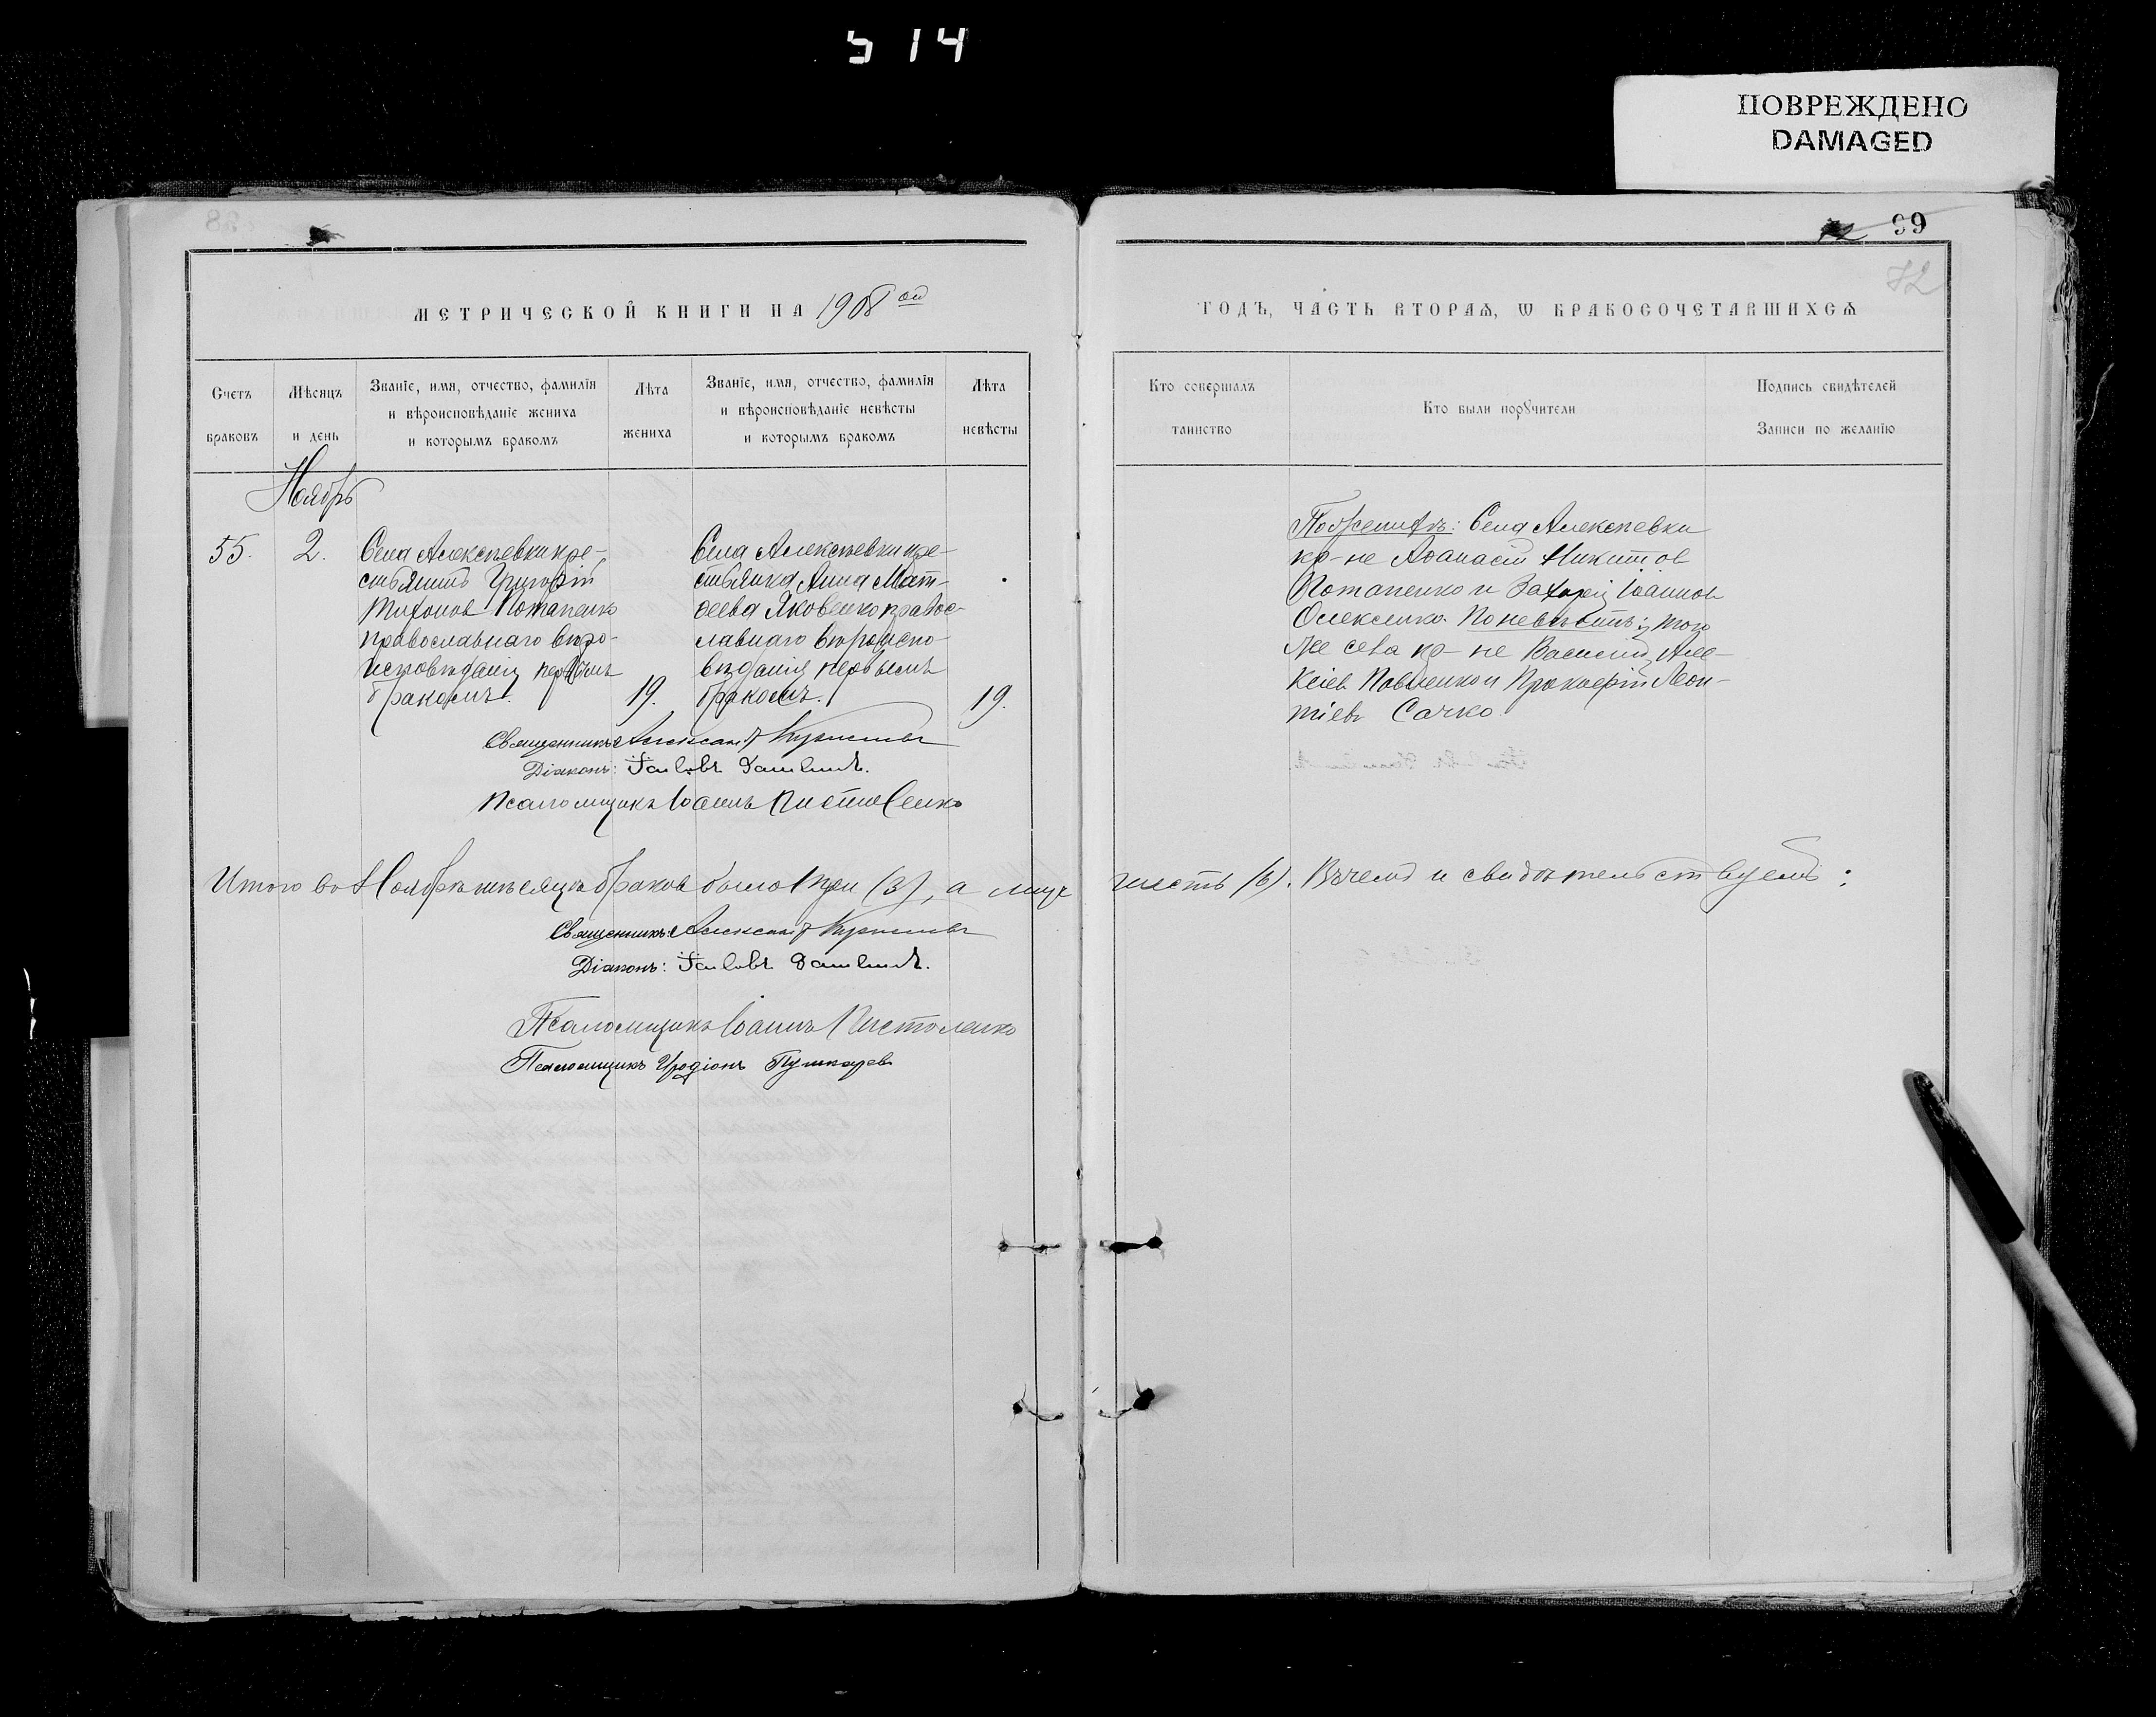 514
ПОВРЕЖДЕНО
DAMAGED
99
72
МЕТРИЧЕСКОЙ КНИГИ НА 1908 ой
ГОДЪ, ЧАСТЬ ВТОРАѦ, Ѡ БРАКОСОЧЕТАВШИХСѦ
Счетъ браковъ
Мѣсяцъ и день
Званіе, имя, отчество, фамилія
и вѣроисповѣданіе жениха
и которымъ бракомъ
Лѣта жениха
Званіе, имя, отчество, фамилія
и вѣроисповѣданіе невѣсты
и которымъ бракомъ
Лѣта невѣсты
Кто совершалъ таинство
Кто были порꙋчители
Подпись свидѣтелей
Записи по желанію
Ноябрь
55.
2.
Села Алексѣевки кре-
стьянинъ Григорій
Тихоновъ Потапенко
православнаго вѣро-
исповѣданія первымъ
бракомъ.
19.
Села Алексѣевки кре-
стьянка Анна Мат-
ѳеева Яковенко правос-
лавнаго вѣроиспо-
вѣданія первымъ
бракомъ.
19.
По женихѣ: Села Алексѣевки
кр-не Аѳанасій Никитовъ
Потапенко и Захарій Іоанновъ
Олексенко. По невѣстѣ: того
же села кр-не Василій Але-
ксіевъ и Прокофій Леон-
тіевъ Сачко.
Священникъ Александръ
Діаконъ: Іаковъ
Псаломщикъ Іоаннъ Пистоленко
Итого въ Ноябрѣ мѣсяцѣ браковъ было три (3), а лицъ шесть (6). Въ чемъ и свидѣтельствуемъ:
Священникъ: Александръ
Діаконъ: Іаковъ
Псаломщикъ Іоаннъ Пистоленко
Псаломщикъ Иродіонъ Пушкаревъ